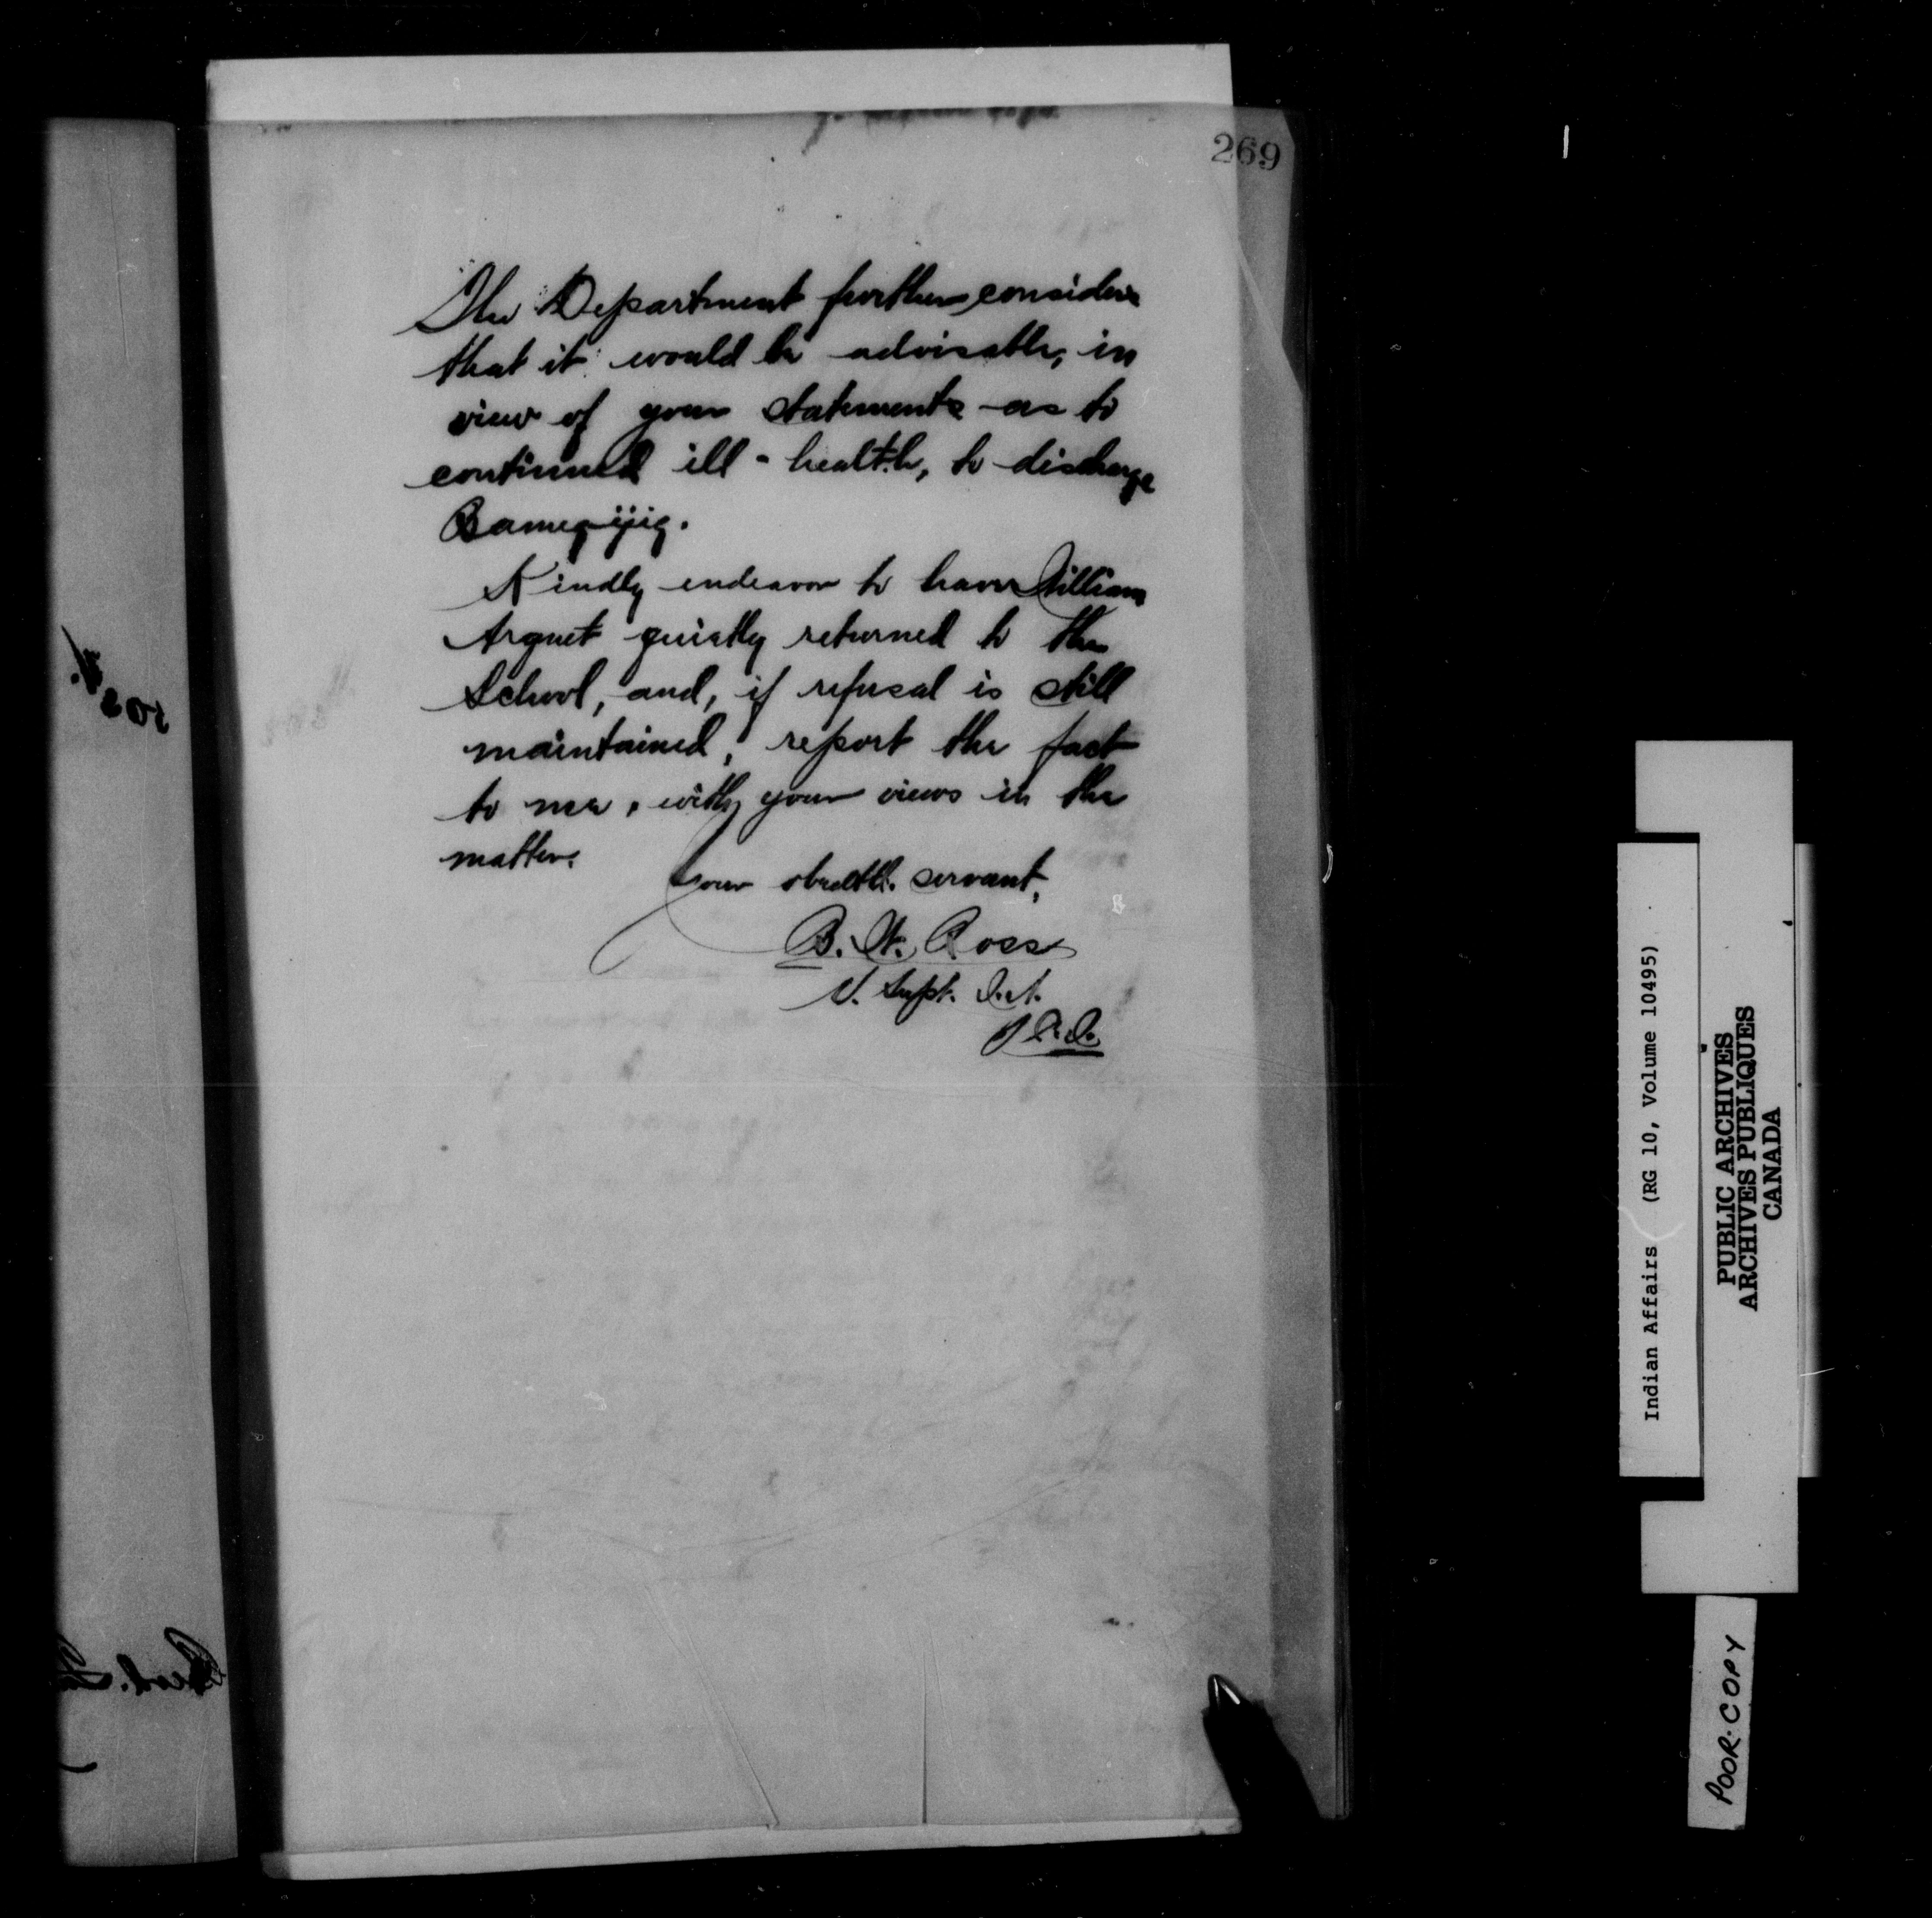 269
The Department further considers
that it would be advisable, in
view of your statements as to
continued ill-health, to discharge
Bamegijig.
Kindly endeavor to have William
Arquet quietly returned to the
School, and, if refusal is still
maintained, report the fact
to me, with your views in the
matter.
Your obedt. servant,
B. W. Ross
Supt. I.A.
Indian Affairs (RG 10, Volume 10495)
PUBLIC ARCHIVES
ARCHIVES PUBLIQUES
CANADA
POOR COPY